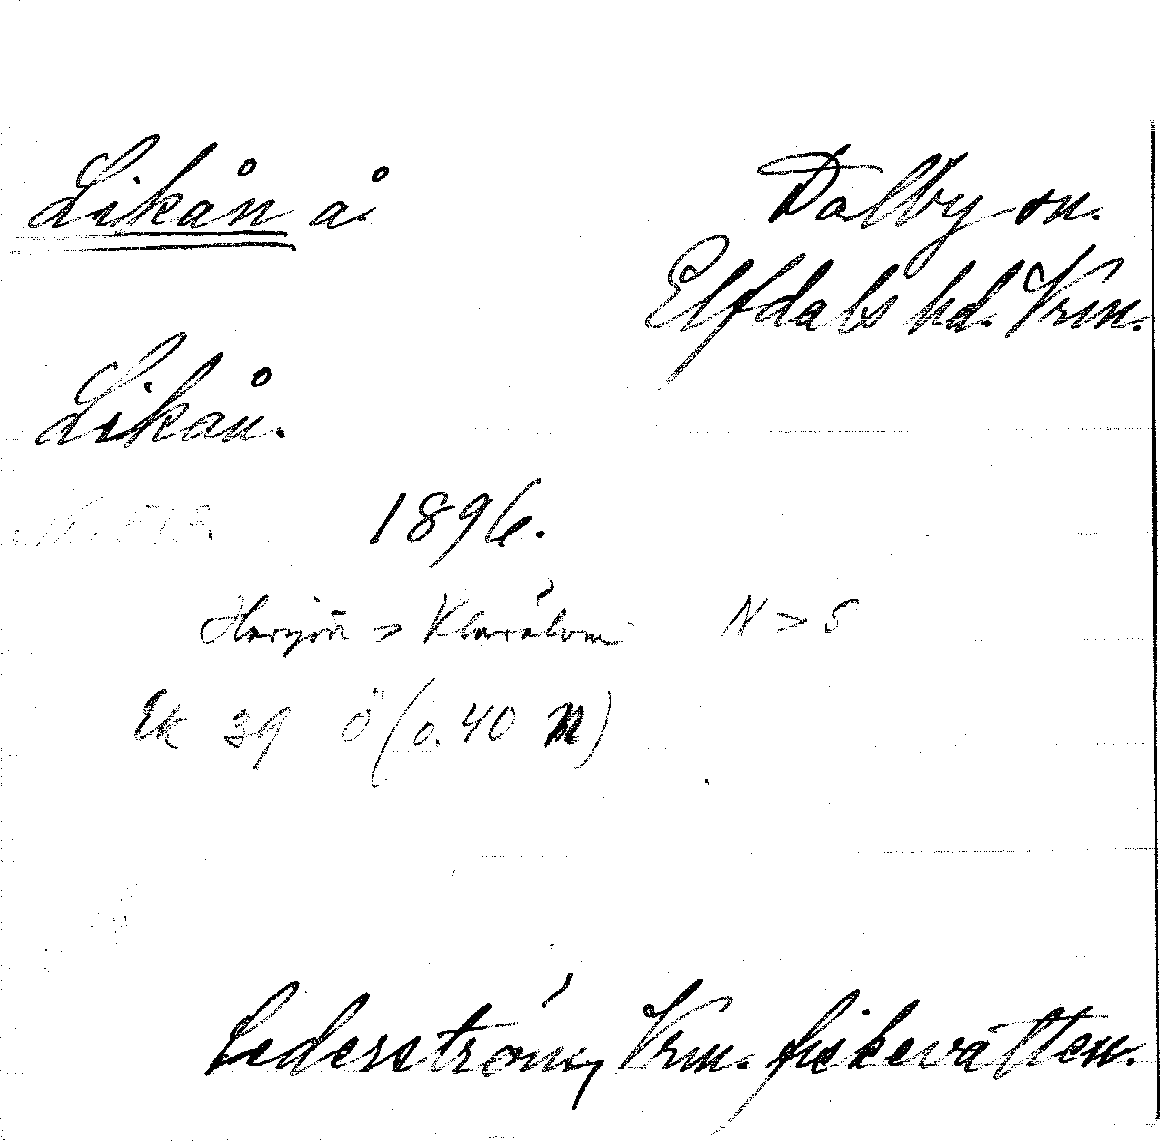 Likån å. Dalby sn.
Elfdals hd. Vrm.
Likån.
1896.
> Klarälven N > S
Ek 39 Ö (o. 40 N)
Cederström, Vrm. fiskevatten.